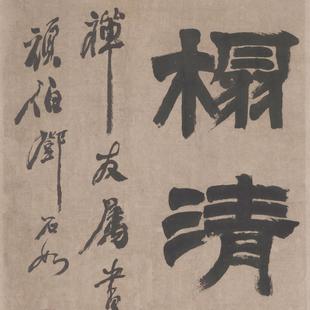 榻清
禅友属書
頑伯鄧石如